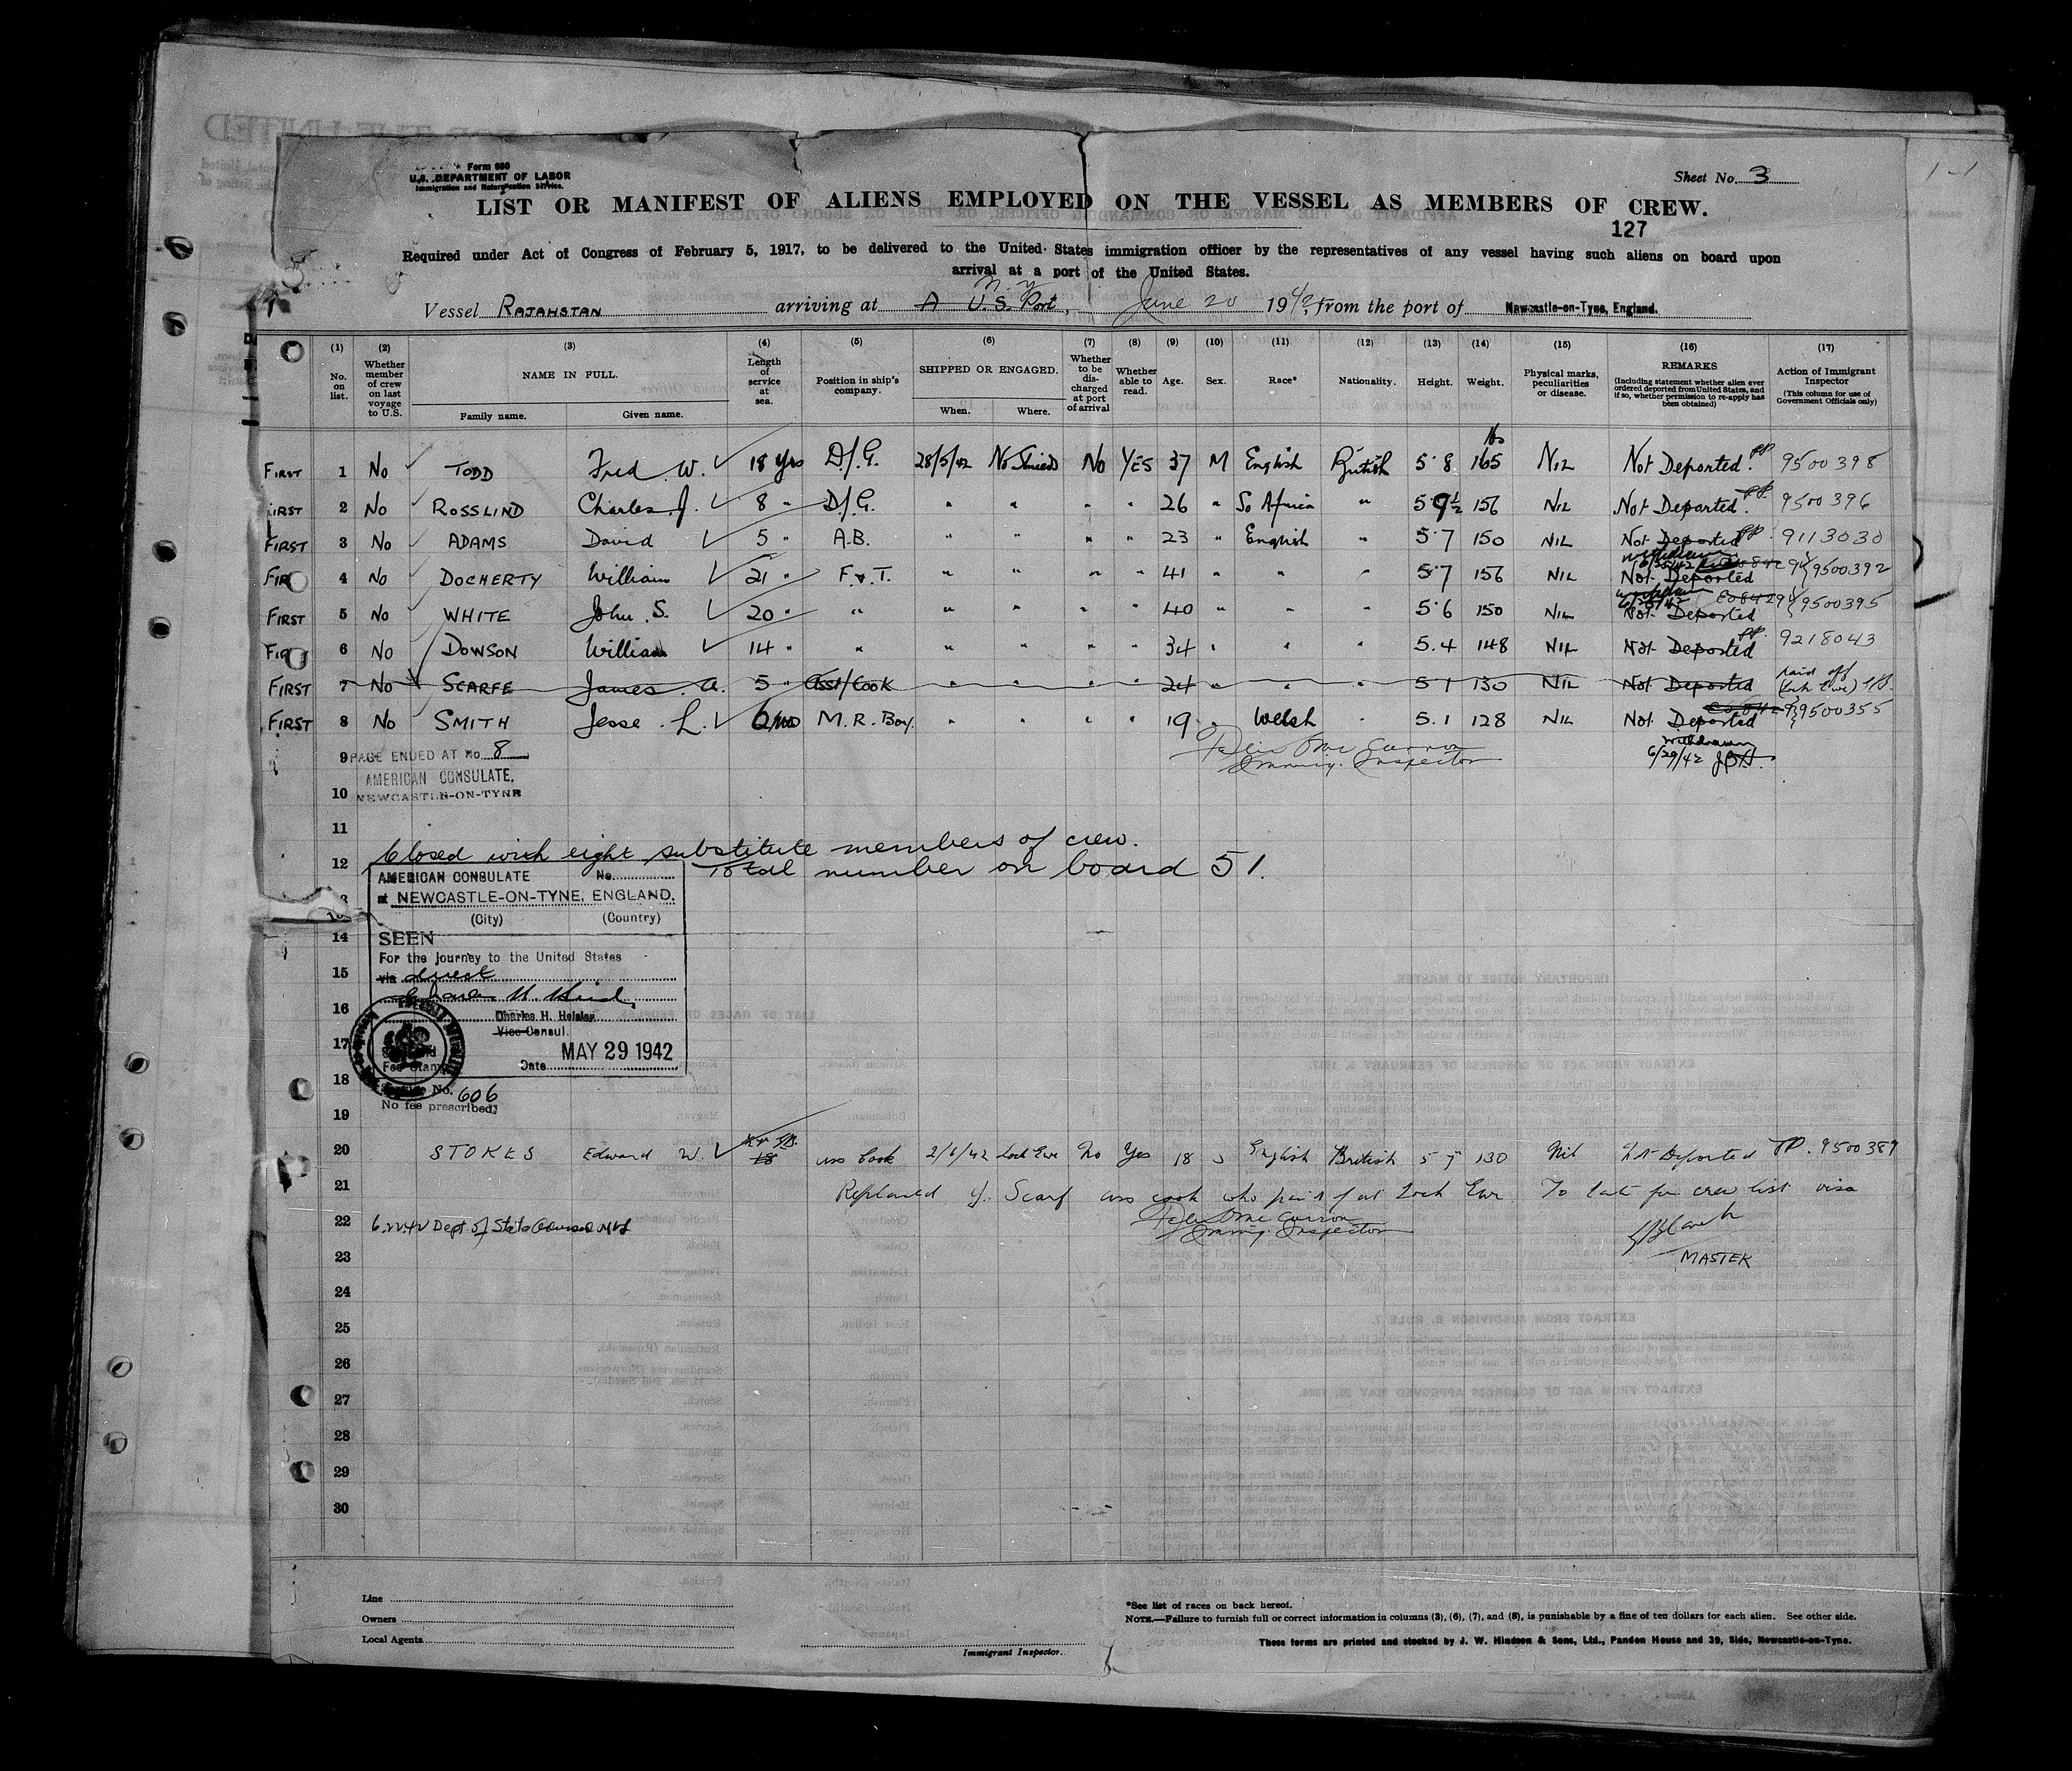 Form 680
U.S. DEPARTMENT OF LABOR
Immigration and Naturalization Service.
Sheet No. 3
LIST OR MANIFEST OF ALIENS EMPLOYED ON THE VESSEL AS MEMBERS OF CREW.
127
Required under Act of Congress of February 5, 1917, to be delivered to the United States immigration officer by the representatives of any vessel having such aliens on board upon
arrival at a port of the United States.
N.Y.
Vessel RAJAHSTAN arriving at A U.S. Port, June 20 1942, from the port of Newcastle-on-Tyne, England.
(1) (2) (3) (4) (5) (6) (7) (8) (9) (10) (11) (12) (13) (14) (15) (16) (17)
No. on list. Whether member of crew on last voyage to U.S. NAME IN FULL. Family name. Given name. Length of service at sea. Position in ship's company. SHIPPED OR ENGAGED. When. Where. Whether to be discharged at port of arrival Whether able to read. Age. Sex. Race* Nationality. Height. Weight. Physical marks, peculiarities or disease. REMARKS (Including statement whether alien ever ordered deported from United States, and if so, whether permission to re-apply has been obtained) Action of Immigrant Inspector (This column for use of Government Officials only)
lbs
FIRST 1 No TODD Fred W. 18 yrs D/G. 28/5/42 No. Shields No YES 37 M English British 5.8 165 NIL Not Deported. PP 9500398
FIRST 2 No ROSSLIND Charles J. 8 " D/G. " " " " 26 " So Africa " 5.9½ 156 NIL Not Deported. PP. 9500396
FIRST 3 No ADAMS David 5 " A.B. " " " " 23 " English " 5.7 150 NIL Not Deported PP. 9113030
withdrawn
FIRST 4 No DOCHERTY William 21 " F.&T. " " " " 41 " " " 5.7 156 NIL Not Deported 9500392
withdrawn
FIRST 5 No WHITE John S. 20 " " " " " " 40 " " " 5.6 150 NIL Not Deported 9500395
FIRST 6 No DOWSON William 14 " " " " " " 34 " " " 5.4 148 NIL Not Deported PP. 9218043
FIRST 7 No SCARFE James A. 5 " Asst/Cook " " " " 24 " " " 5.1 130 NIL Not Deported Laid off (Loch Ewe)
FIRST 8 No SMITH Jesse L. 6 mo M.R. Boy. " " " " 19 " Welsh " 5.1 128 NIL Not Deported 9500355
9 PAGE ENDED AT No 8
Immig. Inspector
withdrawn
6/29/42
AMERICAN CONSULATE,
10 NEWCASTLE-ON-TYNE
11
Closed with eight substitute members of crew.
12 Total number on board 51.
AMERICAN CONSULATE No.
13 at NEWCASTLE-ON-TYNE, ENGLAND.
(City) (Country)
14 SEEN
For the journey to the United States
15 via direct
16
Charles H. Heisler
Vice Consul.
17
Fee Stamp Date MAY 29 1942
18
Service No. 606
No fee prescribed.
19
20 STOKES Edward W. 18 ass Cook 2/6/42 Loch Ewe No Yes 18 S English British 5 5 130 Nil Not Deported PP. 9500389
21 Replaced J. Scarf ass cook who paid off at Loch Ewe. To late for crew list visa
22 6.22.42 Dept of State
Immig. Inspector
23 MASTER
24
25
26
27
28
29
30
Line
Owners
Local Agents
Immigrant Inspector.
*See list of races on back hereof.
NOTE.—Failure to furnish full or correct information in columns (3), (6), (7), and (8), is punishable by a fine of ten dollars for each alien. See other side.
These forms are printed and stocked by J. W. Hindson & Sons, Ltd., Pandon House and 39, Side, Newcastle-on-Tyne.